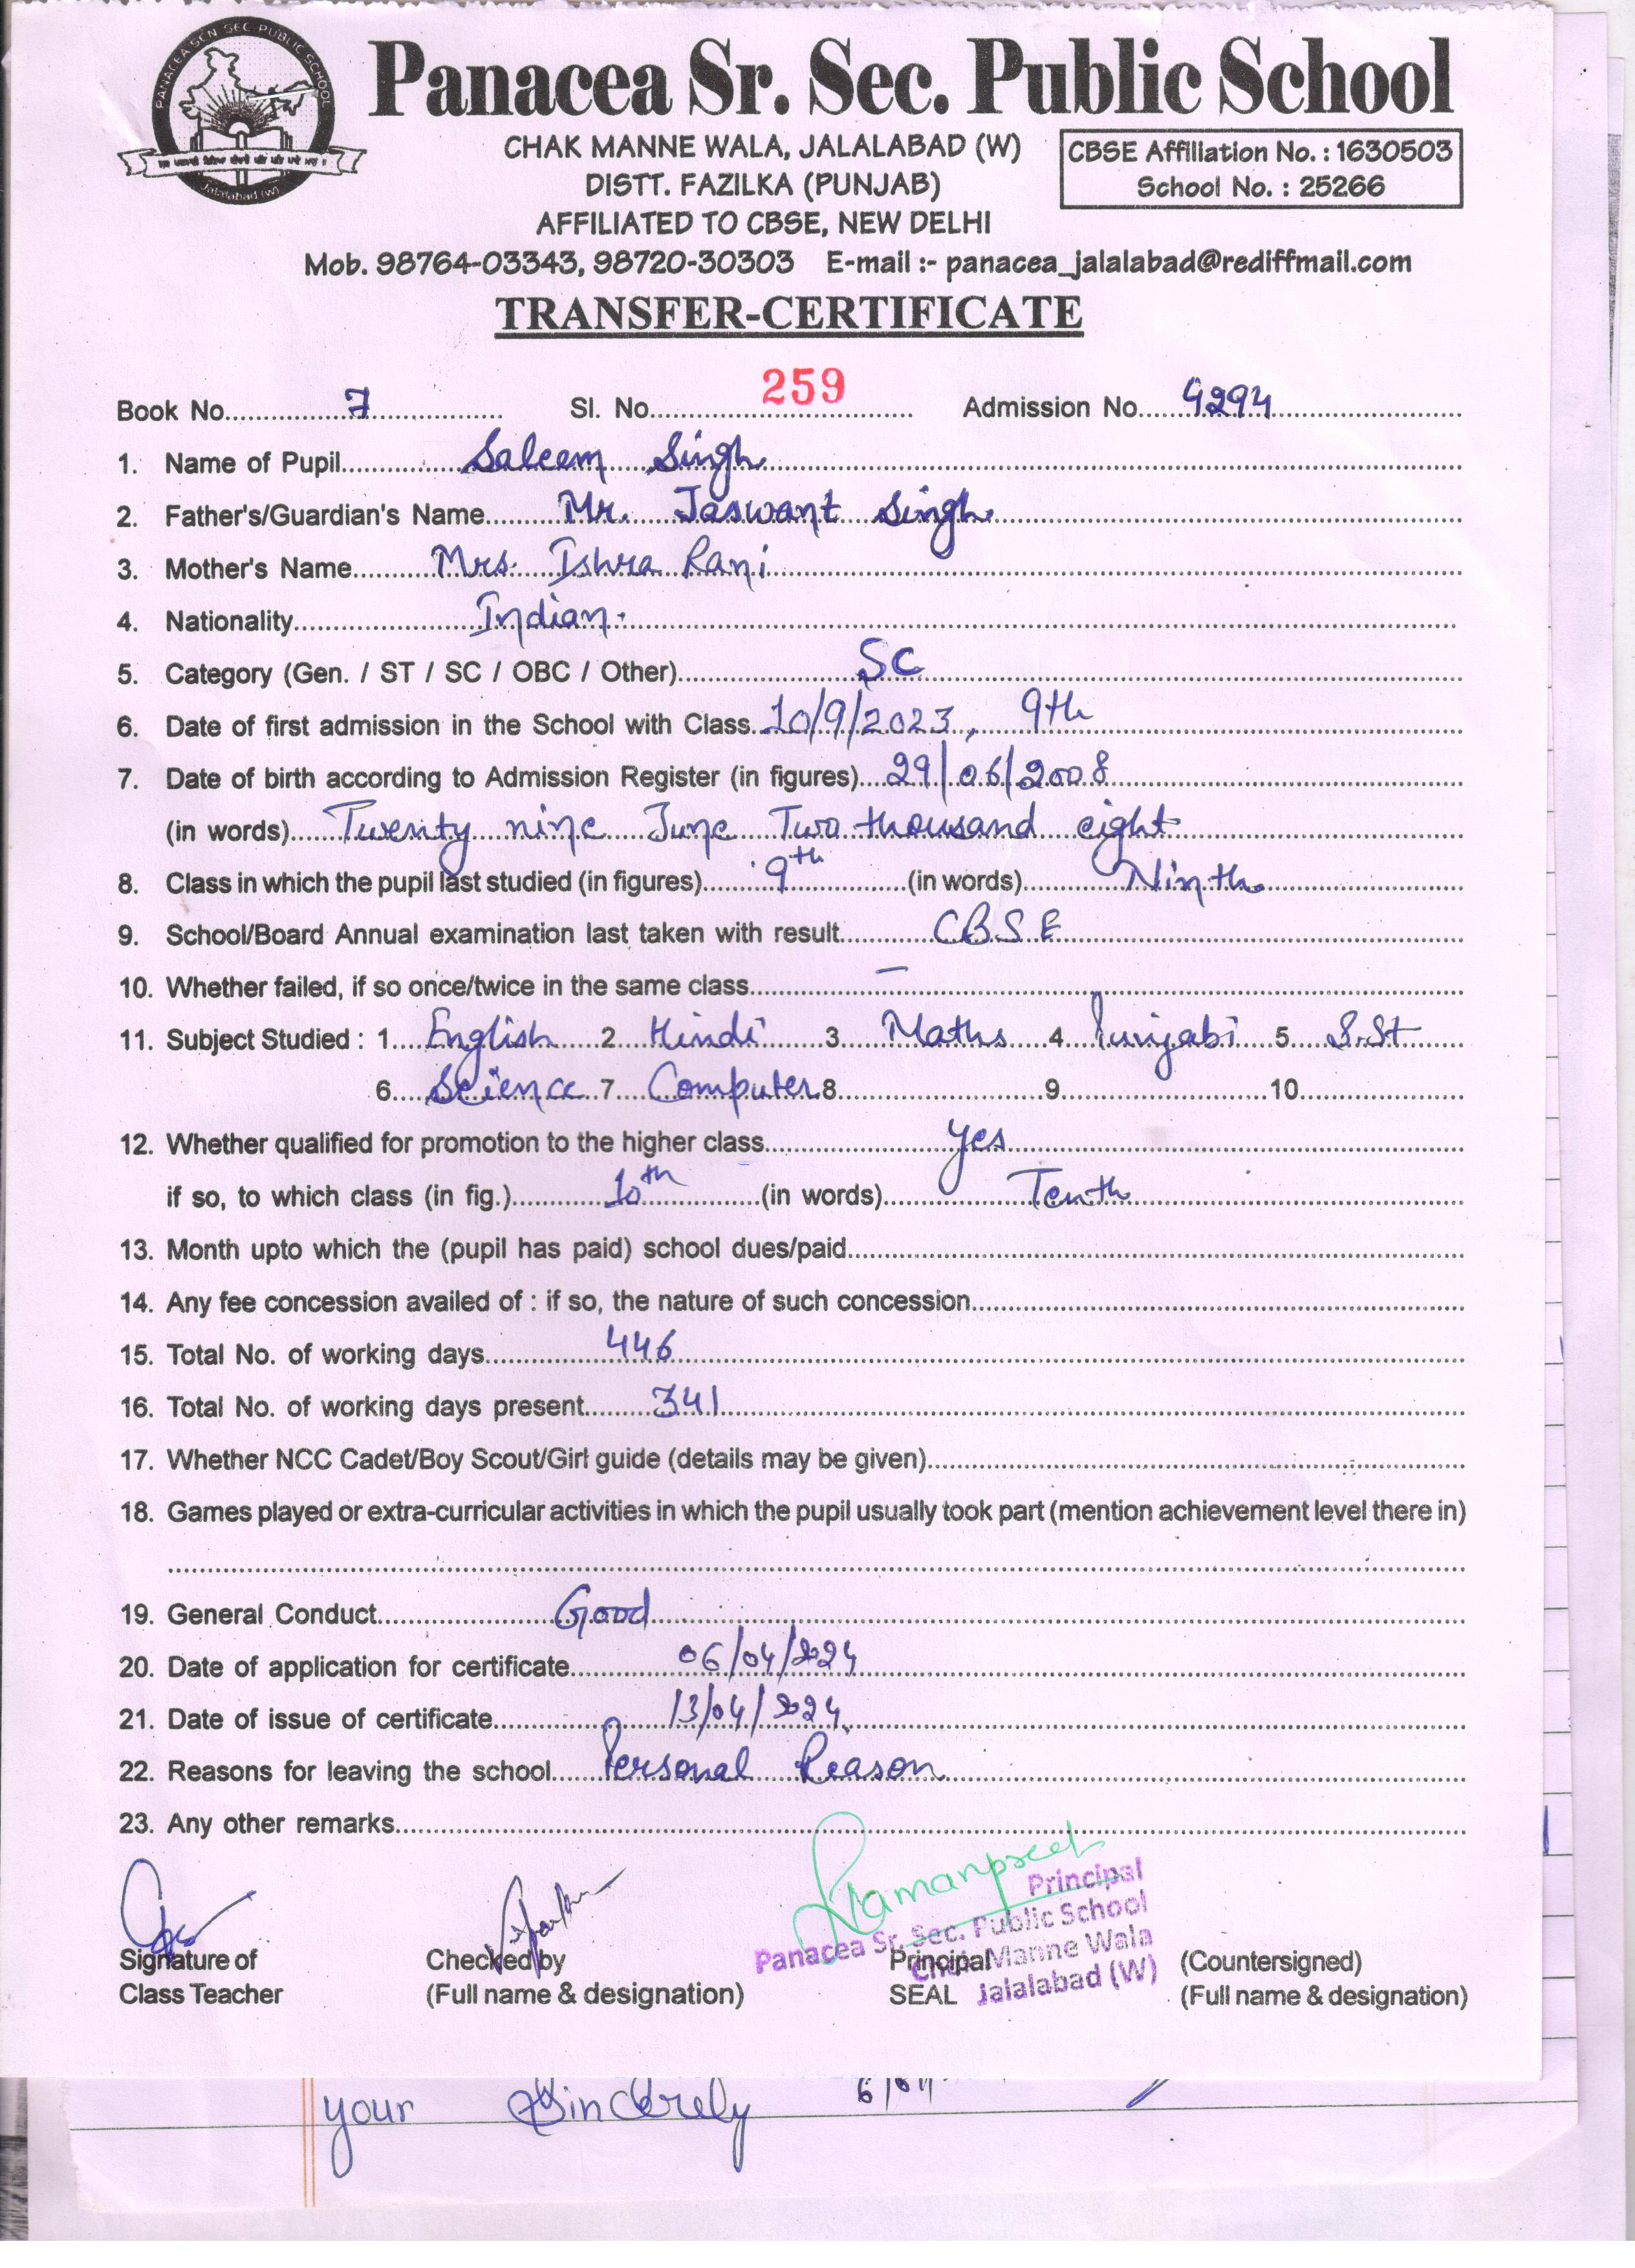 PANACEA SEN SEC PUBLIC SCHOOL
Jalalabad (W)
Panacea Sr. Sec. Public School
CHAK MANNE WALA, JALALABAD (W)
CBSE Affiliation No. : 1630503
DISTT. FAZILKA (PUNJAB)
School No. : 25266
AFFILIATED TO CBSE, NEW DELHI
Mob. 98764-03343, 98720-30303 E-mail :- panacea_jalalabad@rediffmail.com
TRANSFER-CERTIFICATE
Book No. 7 Sl. No. 259 Admission No. 4294
1. Name of Pupil Saleem Singh
2. Father's/Guardian's Name Mr. Jaswant Singh
3. Mother's Name Mrs. Ishra Rani
4. Nationality Indian.
5. Category (Gen. / ST / SC / OBC / Other) SC
6. Date of first admission in the School with Class 10/9/2023, 9th
7. Date of birth according to Admission Register (in figures) 29/06/2008
(in words) Twenty nine June Two thousand eight
8. Class in which the pupil last studied (in figures) 9th (in words) Ninth
9. School/Board Annual examination last taken with result CBSE
10. Whether failed, if so once/twice in the same class —
11. Subject Studied : 1. English 2 Hindi 3 Maths 4 Punjabi 5 S.St
6. Science 7 Computer 8 9 10
12. Whether qualified for promotion to the higher class yes
if so, to which class (in fig.) 10th (in words) Tenth
13. Month upto which the (pupil has paid) school dues/paid
14. Any fee concession availed of : if so, the nature of such concession
15. Total No. of working days 446
16. Total No. of working days present 341
17. Whether NCC Cadet/Boy Scout/Girl guide (details may be given)
18. Games played or extra-curricular activities in which the pupil usually took part (mention achievement level there in)
19. General Conduct Good
20. Date of application for certificate 06/04/2024
21. Date of issue of certificate 13/04/2024
22. Reasons for leaving the school Personal Reason
23. Any other remarks
Ramanpreet
Principal
Panacea Sr. Sec. Public School
Chak Manne Wala
Jalalabad (W)
Signature of Checked by Principal (Countersigned)
Class Teacher (Full name & designation) SEAL (Full name & designation)
your Sincerely